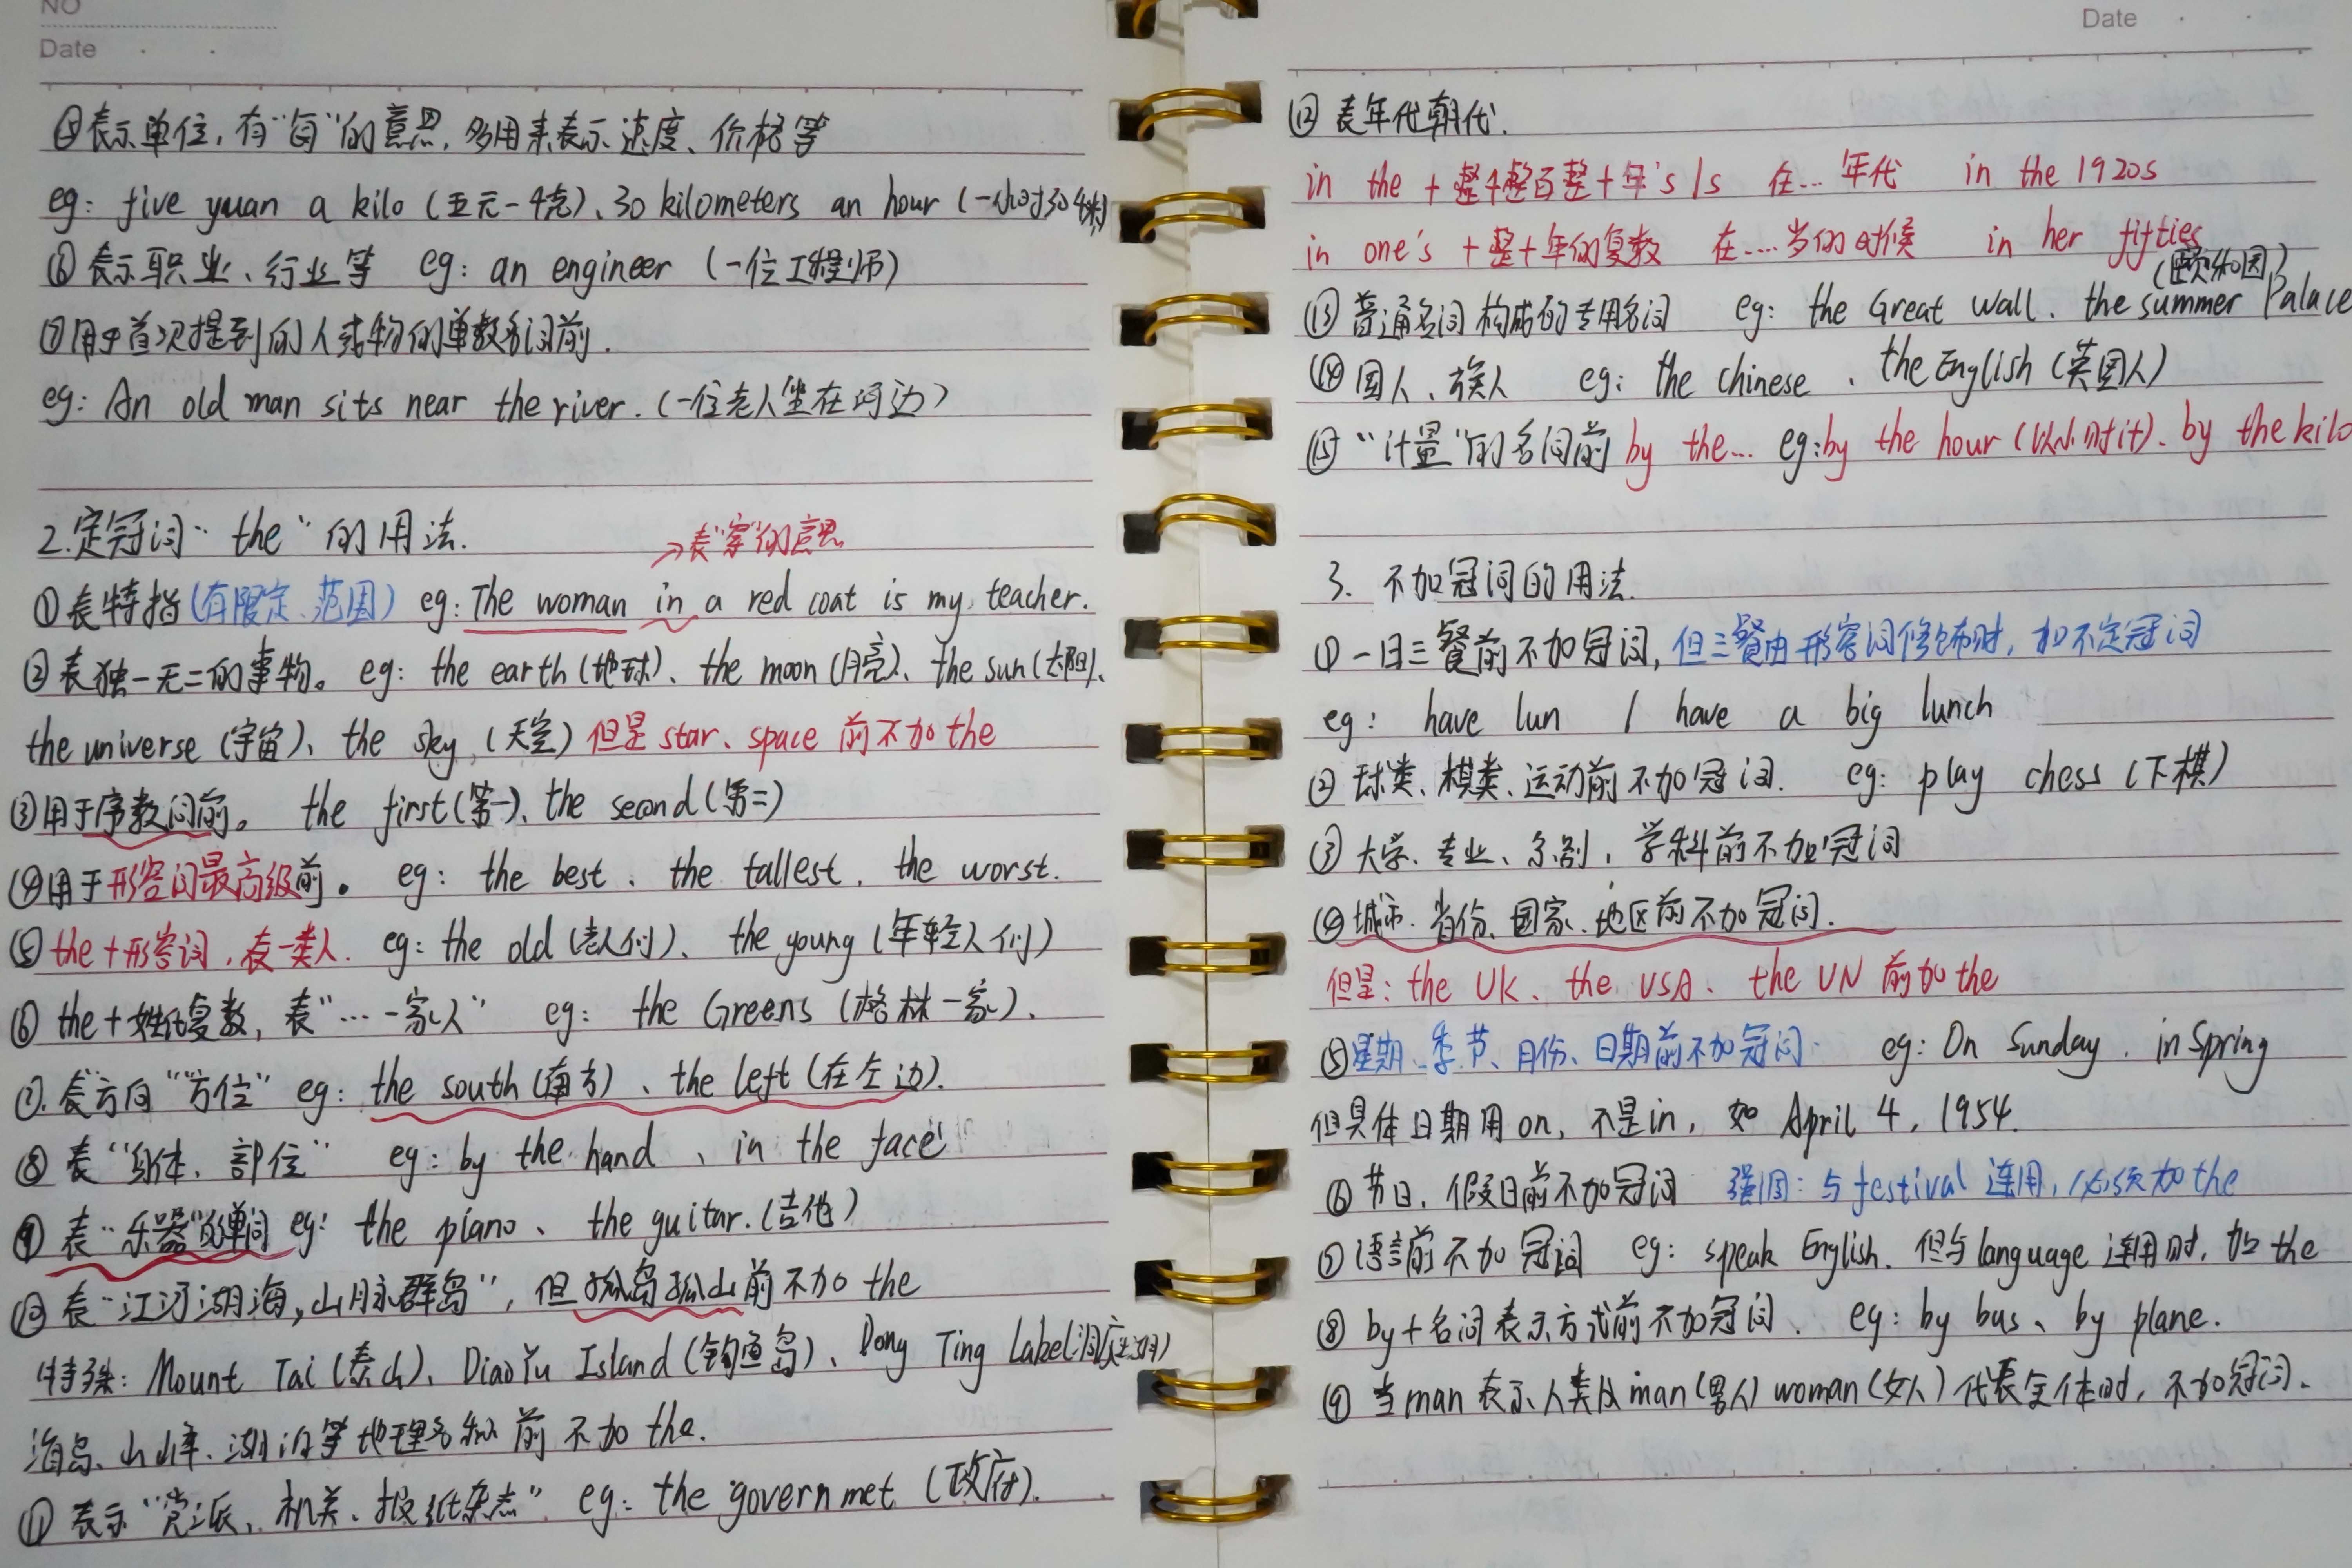 NO
Date
⑤表示单位,有“每”的意思,多用来表示速度、价格等
eg: five yuan a kilo (五元一千克)、30 kilometers an hour (一小时30千米)
⑥表示职业、行业等 eg: an engineer (一位工程师)
⑦用于首次提到的人或物的单数名词前.
eg: An old man sits near the river. (一位老人坐在河边)
2.定冠词“the”的用法.
→表“穿”的意思
①表特指(有限定、范围) eg: The woman in a red coat is my teacher.
②表独一无二的事物。eg: the earth (地球)、the moon (月亮)、the sun (太阳)、
the universe (宇宙)、the sky (天空) 但是 star、space 前不加 the
③用于序数词前。 the first (第一)、the second (第二)
④用于形容词最高级前。 eg: the best 、the tallest 、the worst.
⑤ the + 形容词,表一类人. eg: the old (老人们)、the young (年轻人们)
⑥ the + 姓氏复数, 表“…一家人” eg: the Greens (格林一家).
⑦.表方向“方位” eg: the south (南方) 、the left (在左边).
⑧ 表“身体、部位” eg: by the hand 、in the face
⑨ 表“乐器”的单词 eg: the piano 、the guitar. (吉他)
⑩ 表“江河湖海,山脉群岛”, 但孤岛孤山前不加 the
特殊: Mount Tai (泰山)、DiaoYu Island (钓鱼岛)、Dong Ting Label (洞庭湖)
海岛、山峰、湖泊等地理名称前不加 the.
⑪ 表示“党派、机关、报纸杂志” eg: the governmet (政府).
Date
⑫ 表年代朝代.
in the + 整千整百整十年's/s 在…年代 in the 1920s
in one's + 整十年的复数 在…岁的时候 in her fifties
(颐和园)
⑬ 普通名词构成的专用名词 eg: the Great wall、the summer Palace
⑭ 国人、族人 eg: the chinese 、the English (英国人)
⑮ “计量”的名词前 by the… eg: by the hour (以小时计)、by the kilo
3. 不加冠词的用法.
① 一日三餐前不加冠词, 但三餐由形容词修饰时, 加不定冠词
eg: have lun / have a big lunch
② 球类、棋类、运动前不加冠词. eg: play chess (下棋)
③ 大学、专业、系别、学科前不加冠词
④ 城市、省份、国家、地区前不加冠词.
但是: the UK、the USA、the UN 前加 the
⑤星期、季节、月份、日期前不加冠词 eg: On Sunday . in Spring
但具体日期用 on, 不是 in, 如 April 4, 1954.
⑥ 节日, 假日前不加冠词 强调: 与 festival 连用, 必须加 the
⑦ 语言前不加冠词 eg: speak English. 但与 language 连用时, 加 the
⑧ by + 名词表示方式前不加冠词. eg: by bus、by plane.
⑨ 当 man 表示人类及 man (男人) woman (女人) 代表全体时, 不加冠词.